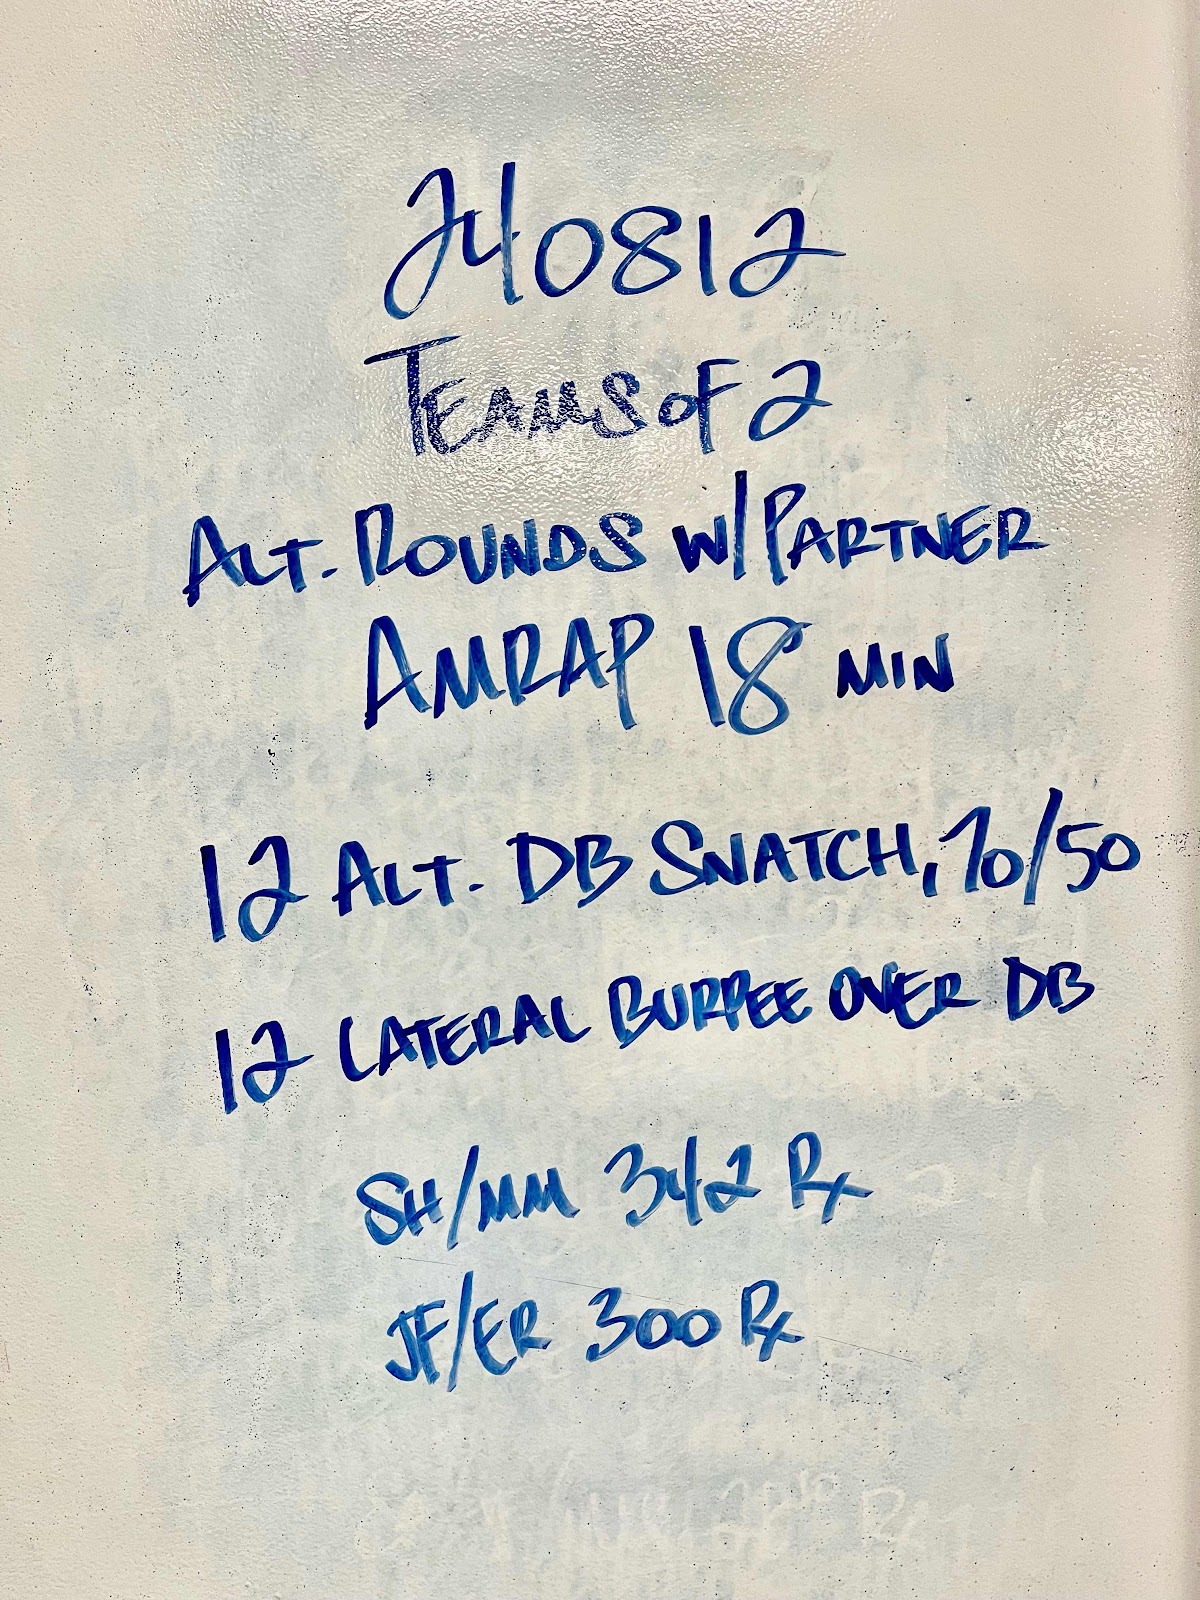 240812
TEAMS OF 2
ALT. ROUNDS W/ PARTNER
AMRAP 18 MIN
12 ALT. DB SNATCH, 70/50
12 LATERAL BURPEE OVER DB
SH/MM 342 Rx
JF/ER 300 Rx